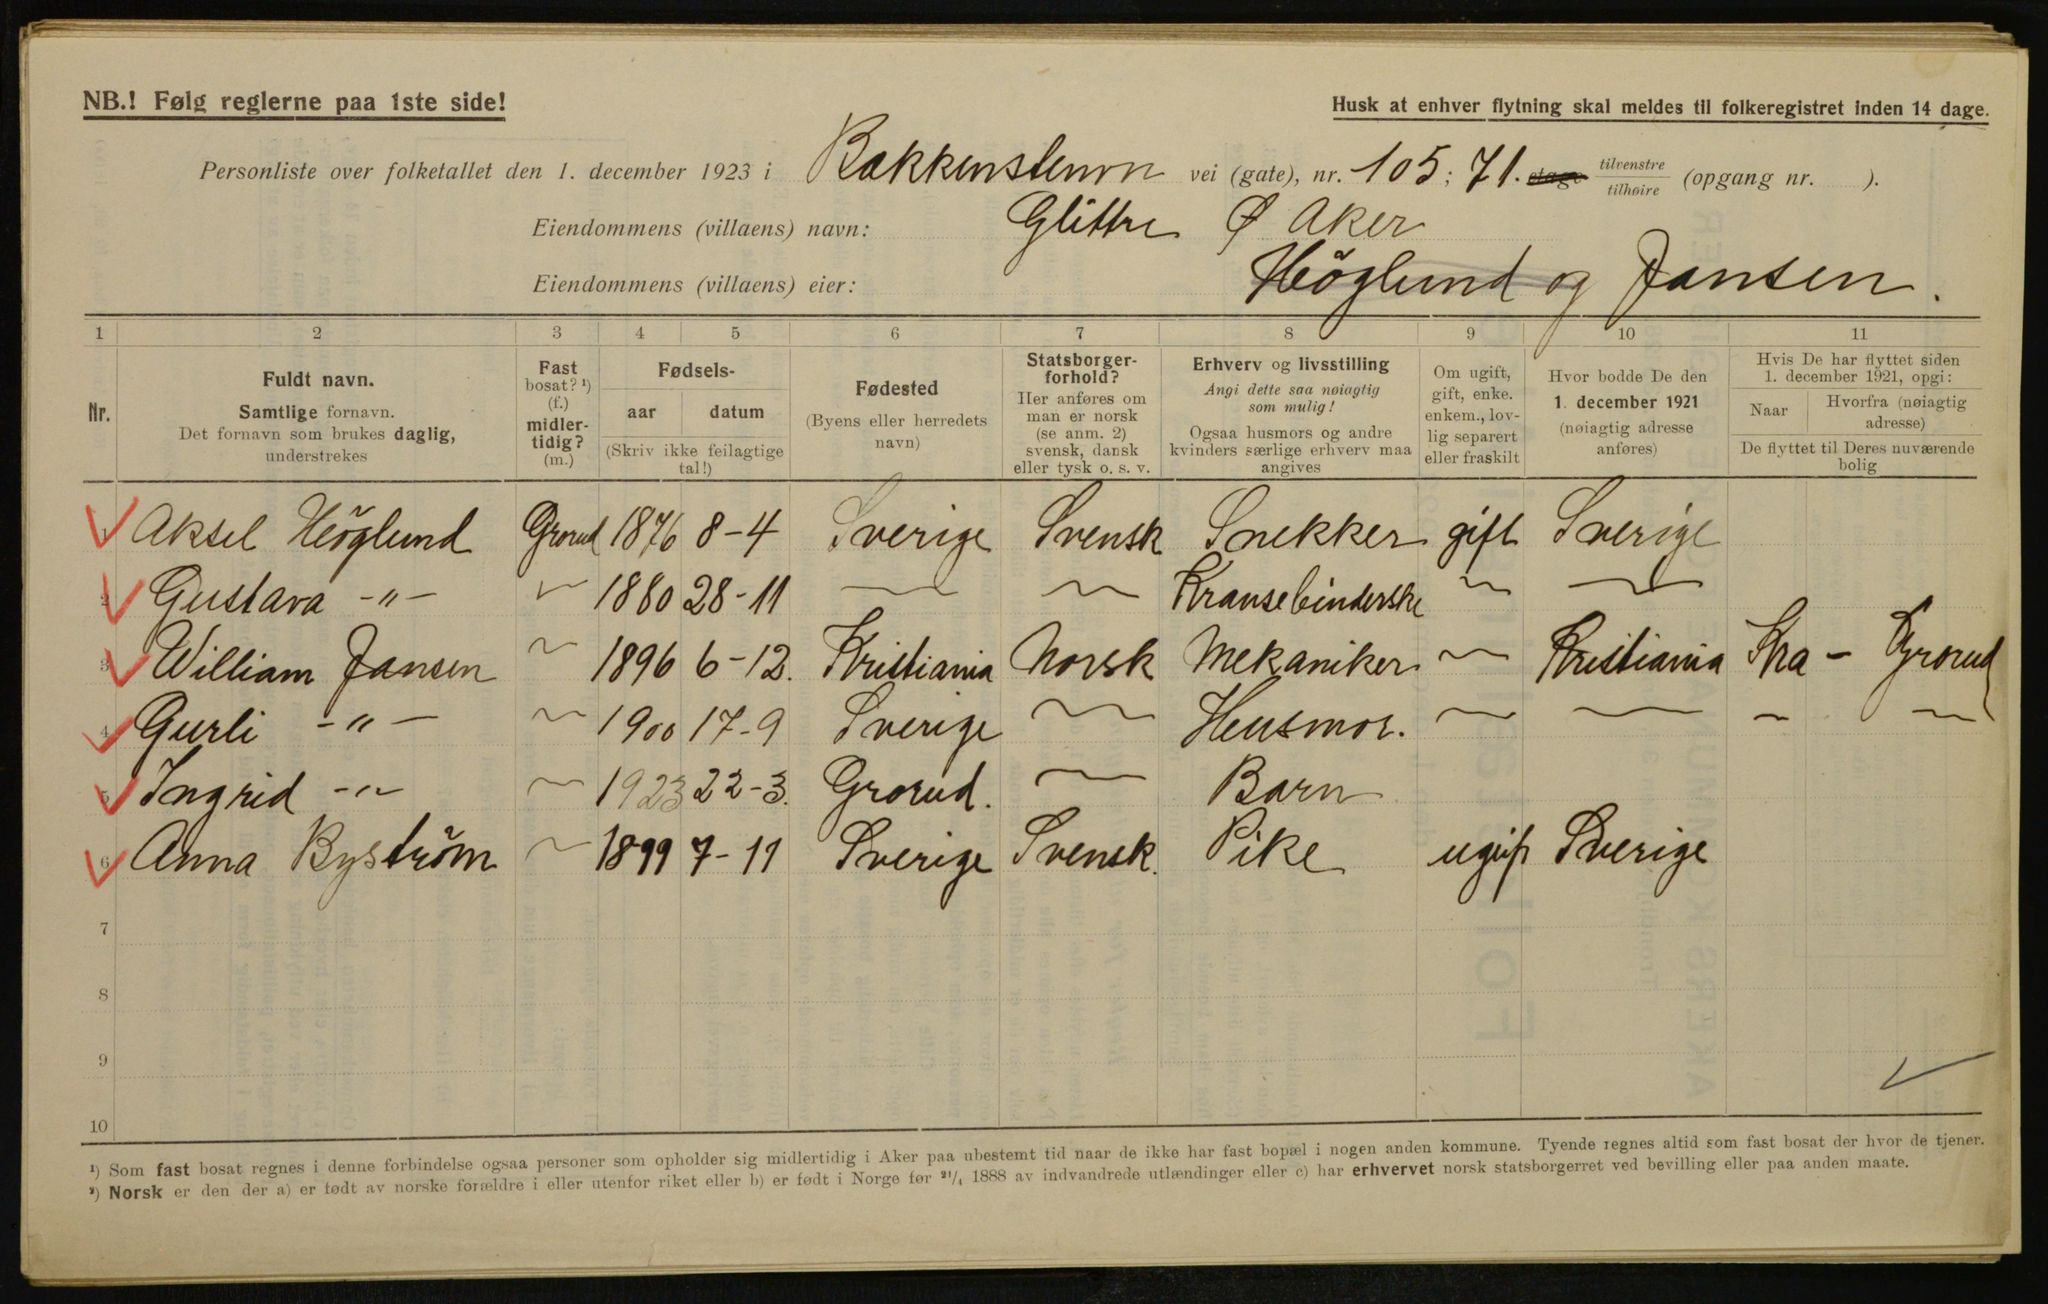 NB.! Følg reglerne paa 1ste side!
Husk at enhver flytning skal meldes til folkeregistret inden 14 dage.
Personliste over folketallet den 1. december 1923 i Bakkenstenvn vei (gate), nr. 105; 71. etage tilvenstre tilhøire (opgang nr. ).
Eiendommens (villaens) navn: Glittre Ø Aker
Eiendommens (villaens) eier: Höglund og Jansen.
1 2 3 4 5 6 7 8 9 10 11
Nr.
Fuldt navn.
Samtlige fornavn.
Det fornavn som brukes daglig,
understrekes
Fast
bosat? ¹)
(f.)
midler-
tidig?
(m.)
Fødsels-
aar datum
(Skriv ikke feilagtige
tal!)
Fødested
(Byens eller herredets
navn)
Statsborger-
forhold?
Her anføres om
man er norsk
(se anm. 2)
svensk, dansk
eller tysk o. s. v.
Erhverv og livsstilling
Angi dette saa nøiagtig
som mulig!
Ogsaa husmors og andre
kvinders særlige erhverv maa
angives
Om ugift,
gift, enke.
enkem., lov-
lig separert
eller fraskilt
Hvor bodde De den
1. december 1921
(nøiagtig adresse
anføres)
Hvis De har flyttet siden
1. december 1921, opgi:
Naar Hvorfra (nøiagtig
adresse)
De flyttet til Deres nuværende
bolig
1 Aksel Höglund Grorud 1876 8-4 Sverige Svensk Snekker gift Sverige
2 Gustava -"- ~ 1880 28-11 ~ ~ Kransebinderske ~ ~
3 William Jansen ~ 1896 6-12. Kristiania Norsk Mekaniker ~ Kristiania Kra - Grorud
4 Gurli -"- ~ 1900 17-9 Sverige ~ Husmor. ~ ~ ~ ~
5 Ingrid -"- ~ 1923 22-3. Grorud. ~ Barn
6 Anna Byström ~ 1899 7-11 Sverige Svensk. Pike ugift Sverige
7
8
9
10
¹) Som fast bosat regnes i denne forbindelse ogsaa personer som opholder sig midlertidig i Aker paa ubestemt tid naar de ikke har fast bopæl i nogen anden kommune. Tyende regnes altid som fast bosat der hvor de tjener.
²) Norsk er den der a) er født av norske forældre i eller utenfor riket eller b) er født i Norge før ²¹/₄ 1888 av indvandrede utlændinger eller c) har erhvervet norsk statsborgerret ved bevilling eller paa anden maate.